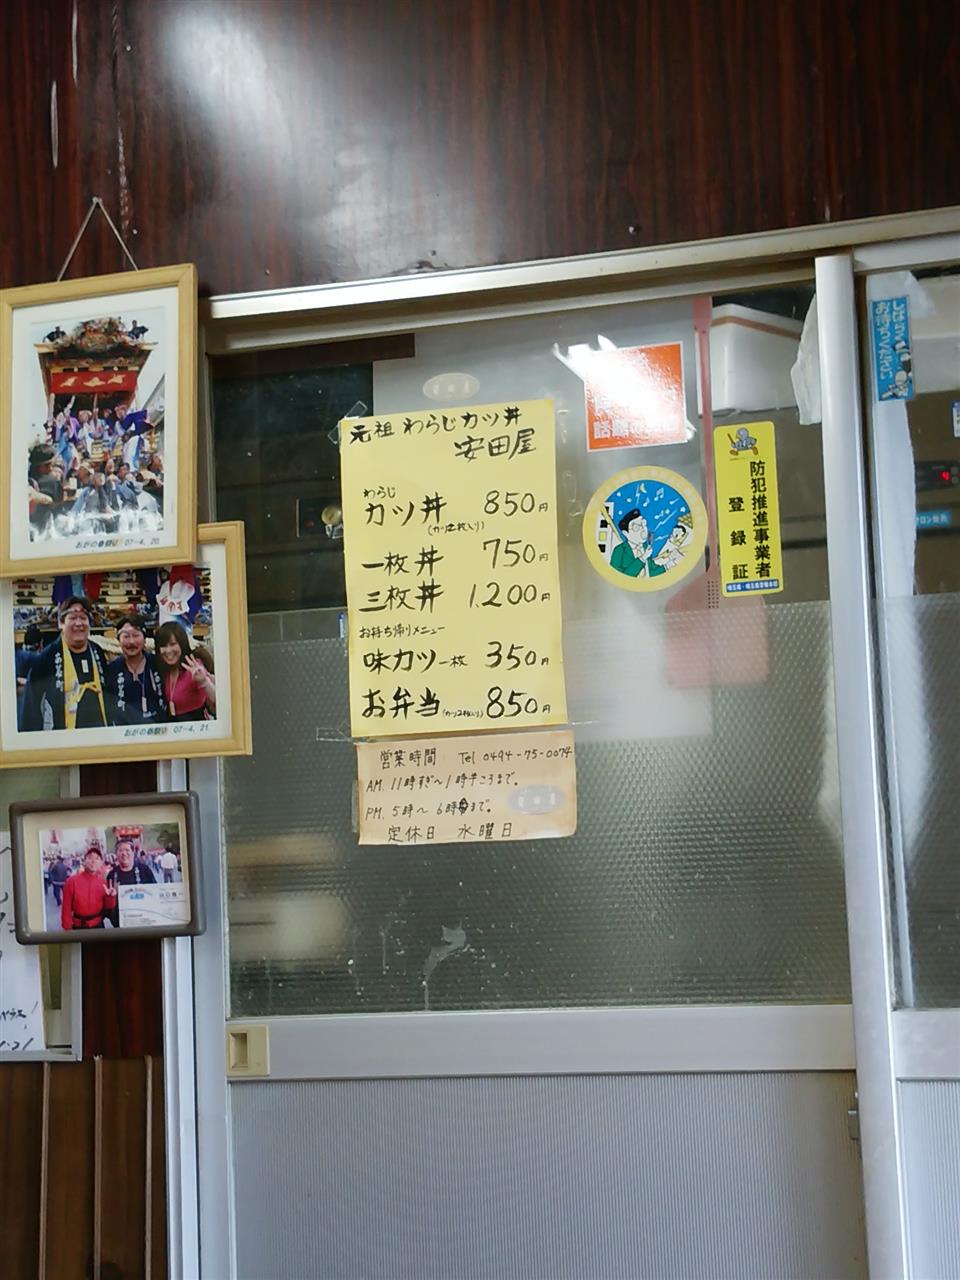 元祖 わらじカツ丼
安田屋
わらじ
カツ丼 850円
(カツ2枚入り)
一枚丼 750円
三枚丼 1.200円
お持ち帰りメニュー
味カツ一枚 350円
お弁当(カツ2枚入り) 850円
営業時間 Tel 0494-75-0074
AM. 11時すぎ〜1時半ころまで。
PM. 5時〜6時まで。
定休日 水曜日
防犯推進事業者
登録証
埼玉県・埼玉県警察本部
しばらく
お待ちください
おがの春祭り 07-4. 20.
おがの春祭り 07-4. 21.